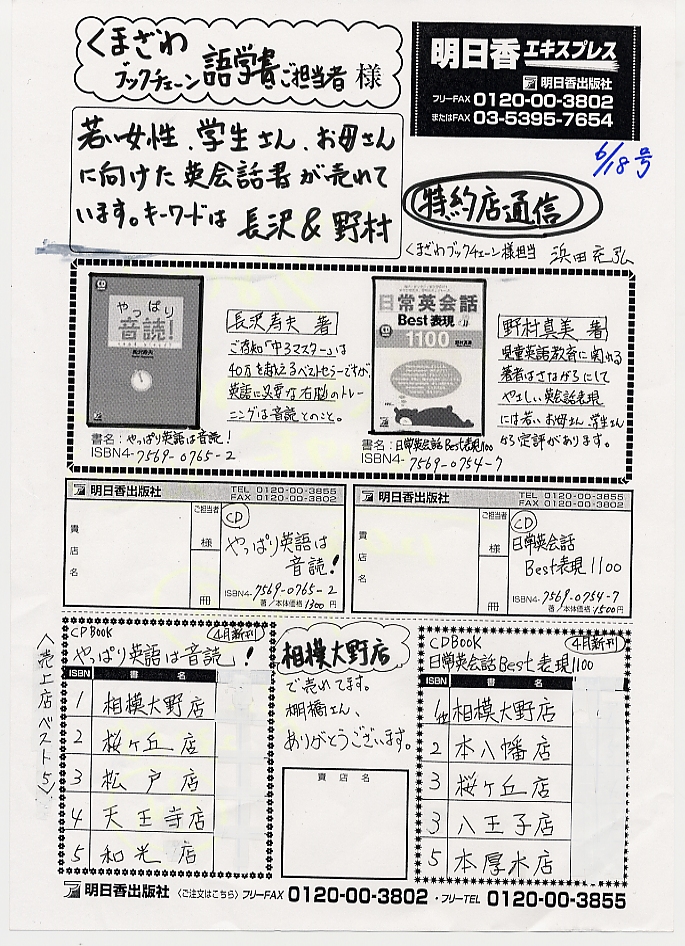 くまざわ
ブックチェーン 語学書ご担当者 様
明日香エキスプレス
明日香出版社
フリーFAX 0120-00-3802
またはFAX 03-5395-7654
6/18号
若い女性、学生さん、お母さん
に向けた英会話書が売れて
います。キーワードは 長沢 & 野村
特約店通信
くまざわブックチェーン様担当 浜田充弘
CD
やっぱり
音読!
長沢寿夫 著
ご存知「中3マスター」は
40万を超えるベストセラーですが、
英語に必要な右脳のトレ
ーニングは音読とのこと。
書名:やっぱり英語は音読!
ISBN4-7569-0765-2
日常英会話
Best表現
1100
野村真美 著
児童英語教育に関わる
著者はさながらにして
やさしい英会話表現
には若いお母さん、学生さん
から定評があります。
書名:日常英会話Best表現1100
ISBN4-7569-0754-7
明日香出版社 TEL 0120-00-3855
FAX 0120-00-3802
貴店名
ご担当者
様
冊
CD
やっぱり英語は
音読!
ISBN4-7569-0765-2
著/本体価格1300円
明日香出版社 TEL 0120-00-3855
FAX 0120-00-3802
貴店名
ご担当者
様
冊
CD
日常英会話
Best表現1100
ISBN4-7569-0754-7
著/本体価格1500円
〈売上店ベスト5〉
CD BOOK 4月新刊
やっぱり英語は音読!
ISBN 書名
1 相模大野店
2 桜ヶ丘店
3 松戸店
4 天王寺店
5 和光店
相模大野店
で売れてます。
棚橋さん、
ありがとうございます。
貴店名
CDBOOK 4月新刊
日常英会話Best表現1100
ISBN 書名
1位 相模大野店
2 本八幡店
3 桜ヶ丘店
3 八王子店
5 本厚木店
明日香出版社 〈ご注文はこちら〉フリーFAX 0120-00-3802・フリーTEL 0120-00-3855